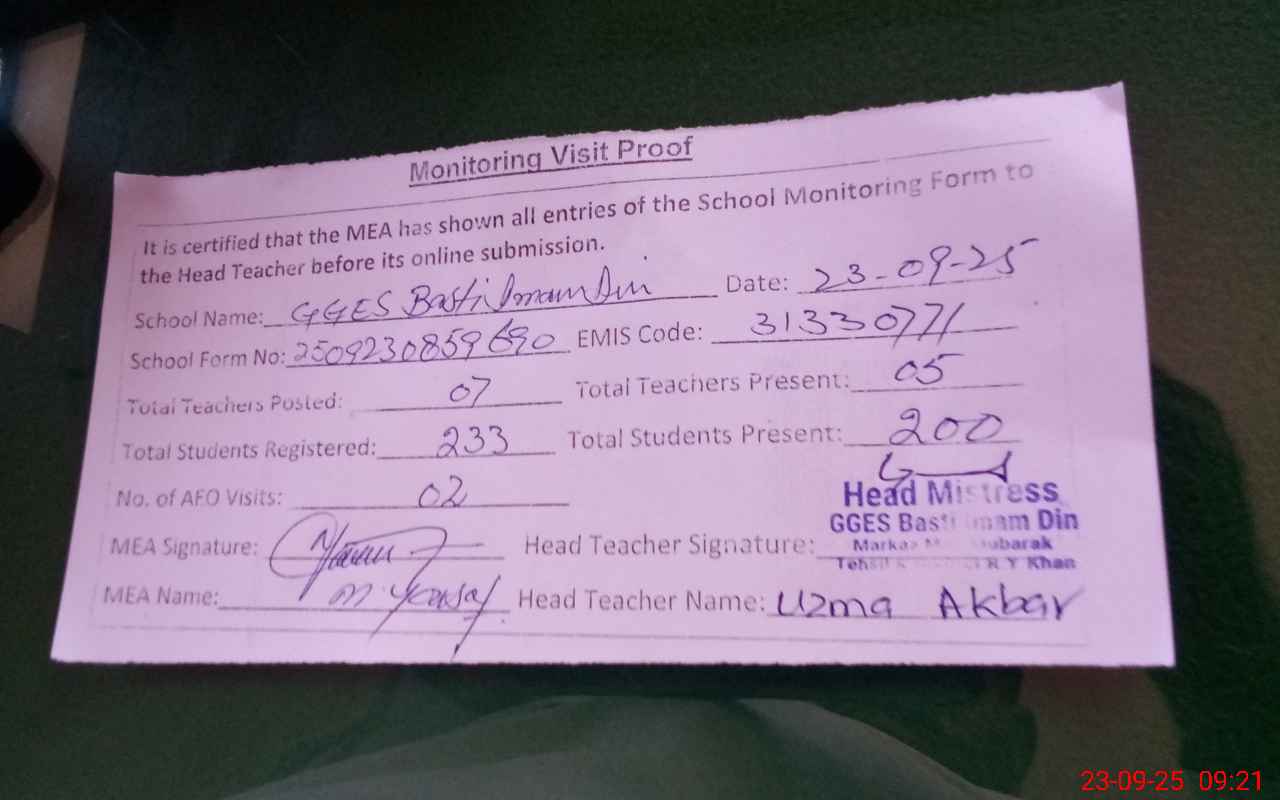 Monitoring Visit Proof
It is certified that the MEA has shown all entries of the School Monitoring Form to
the Head Teacher before its online submission.
School Name: GGES Basti Imam Din Date: 23-09-25
School Form No: 2509230859690 EMIS Code: 31330771
Total Teachers Posted: 07 Total Teachers Present: 05
Total Students Registered: 233 Total Students Present: 200
No. of AEO Visits: 02
Head Mistress
GGES Basti Imam Din
Markaz Mubarak
MEA Signature: Head Teacher Signature:
Tehsil R Y Khan
MEA Name: M. Yousaf Head Teacher Name: Uzma Akbar
23-09-25 09:21